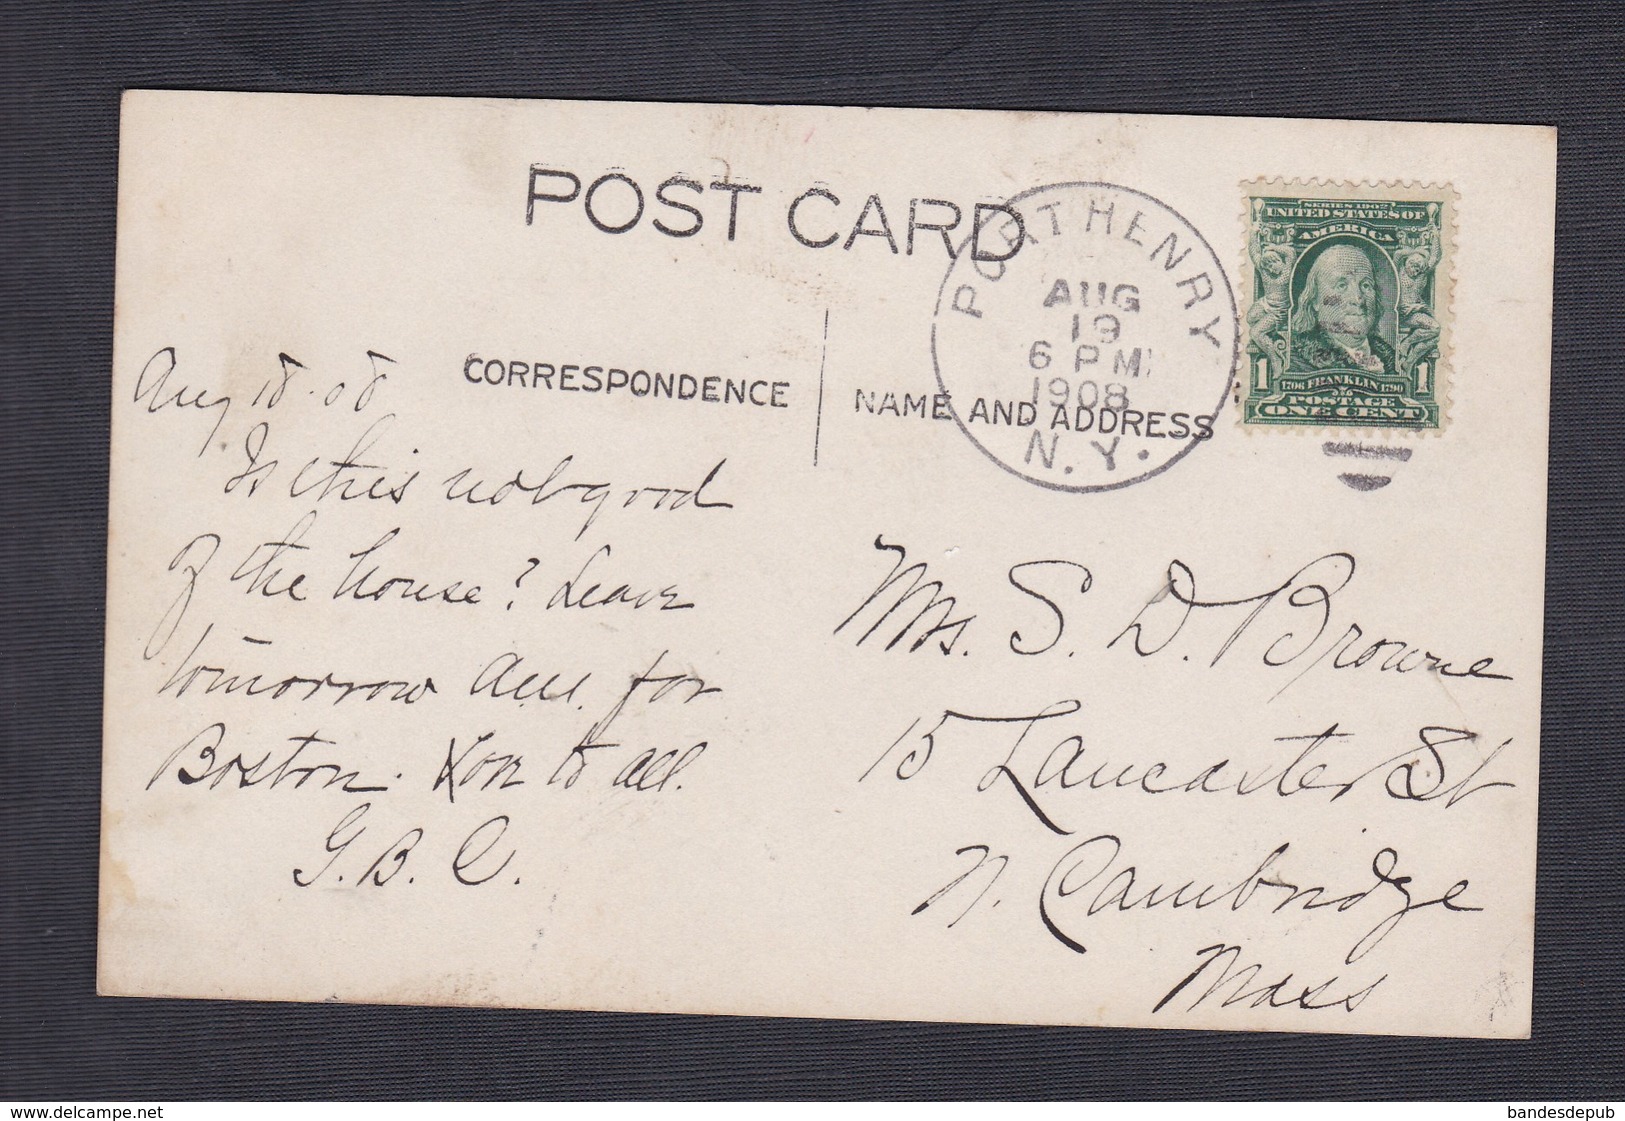 POST CARD
PORT HENRY
AUG
19
6 PM
1908
N.Y.
SERIES 1902
UNITED STATES OF
AMERICA
1 1706 FRANKLIN 1790 1
POSTAGE
ONE CENT
CORRESPONDENCE
NAME AND ADDRESS
Aug 18 . 08
Is this not good
of the house? Leave
tomorrow for
Boston. to all.
G. B. C.
Mrs. S. D. Browne
15 Lancaster St
N. Cambridge
Mass
www.delcampe.net
bandesdepub